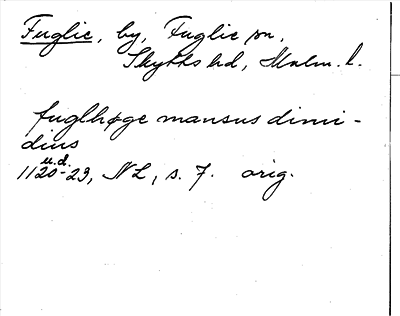 Fuglie, by, Fuglie sn,
Skytts hd, Malm. l.
fuglhøge mansus dimi-
dius
u.d.
1120-23, NL, s. 7. orig.